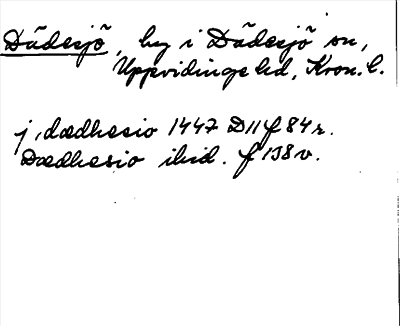 Dädesjö, by i Dädesjö sn,
Uppvidinge hd, Kron. l.
j, dædhesio 1447 D11 f 84r.
Dædhesio ibid. f 138v.